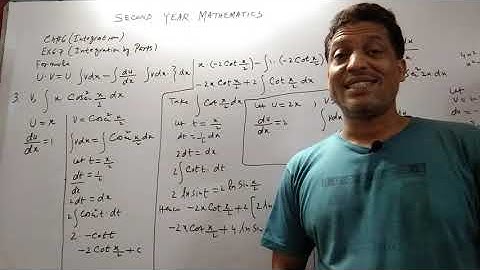 SECOND YEAR MATHEMATICS
Ch#6 (Integration)
Ex6.7 (Integration by Parts)
Formula
U·V = U ∫vdx - ∫ du/dx ∫vdx } dx
3. V, ∫ x Cosec² x/2 dx
U = x
V = Cosec² x/2
du/dx = 1
∫vdx = ∫Cosec² x/2 dx
Let t = x/2
dt/dx = 1/2
2dt = dx
2∫Cosec²t·dt
2 -Cott
-2Cot x/2 + C
x·(-2Cot x/2) - ∫1·(-2Cot x/2)
-2x Cot x/2 + 2∫Cot x/2
Take ∫Cot x/2 dx
Let t = x/2
dt = 1/2 dx
2dt = dx
2∫Cott·dt
2 ln sint = 2 ln Sin x/2
Hence -2x Cot x/2 + 2 (2 ln
-2x Cot x/2 + 4 ln Sin
Let U = 2x
du/dx = 2